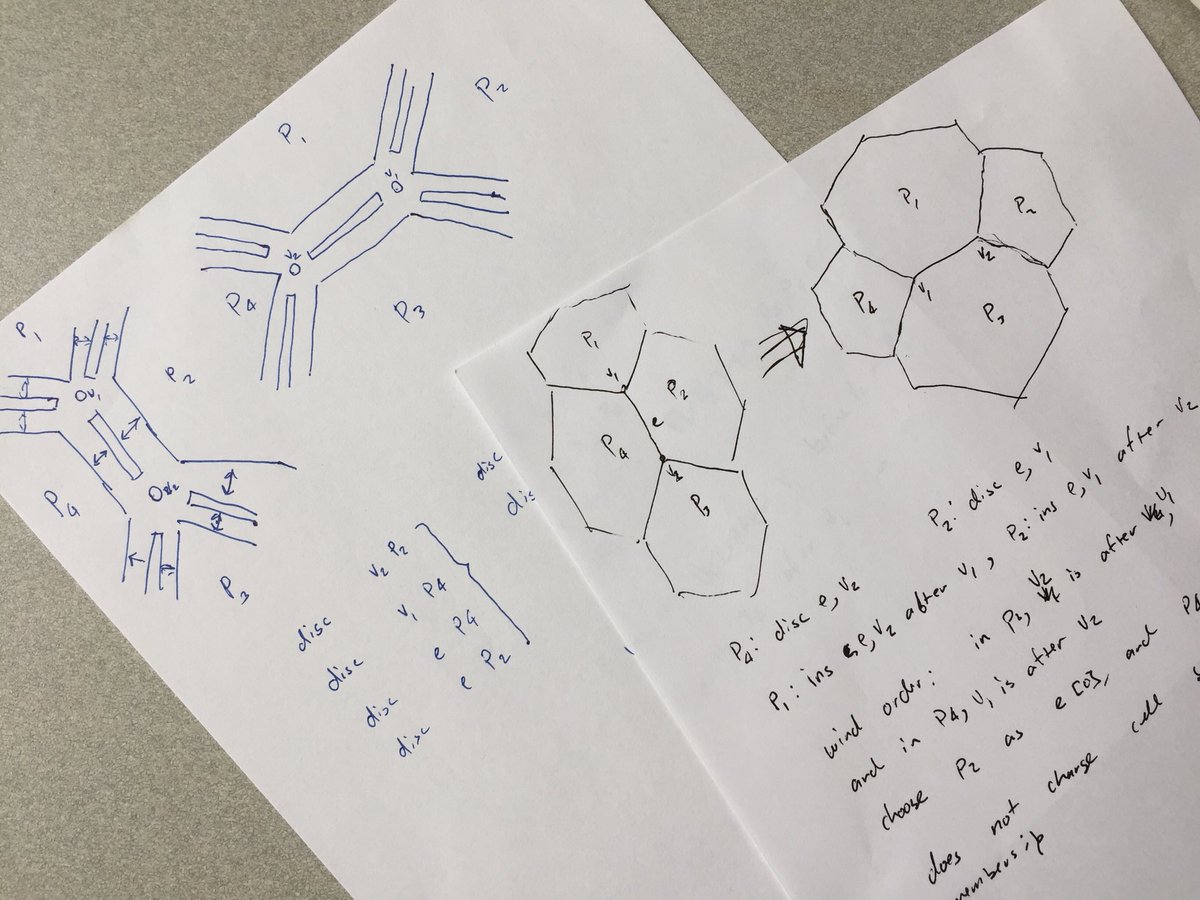 P1
P2
V1
V2
P4
P3
P1
V1
P2
V2
P4
P3
disc V2 P2
disc V1 P4
disc e P4
disc e P2
disc
disc
P1
V1
P2
e
P4
V2
P3
P1
P2
V2
P4
V1
P3
P4: disc e, V2
P2: disc e, V1
P1: ins e, V2 after V1, P2: ins e, V1 after V2
wind order: in P2, V2 is after V1,
and in P4, V1 is after V2
choose P2 as e[0], and P4
does not change cell
membersip